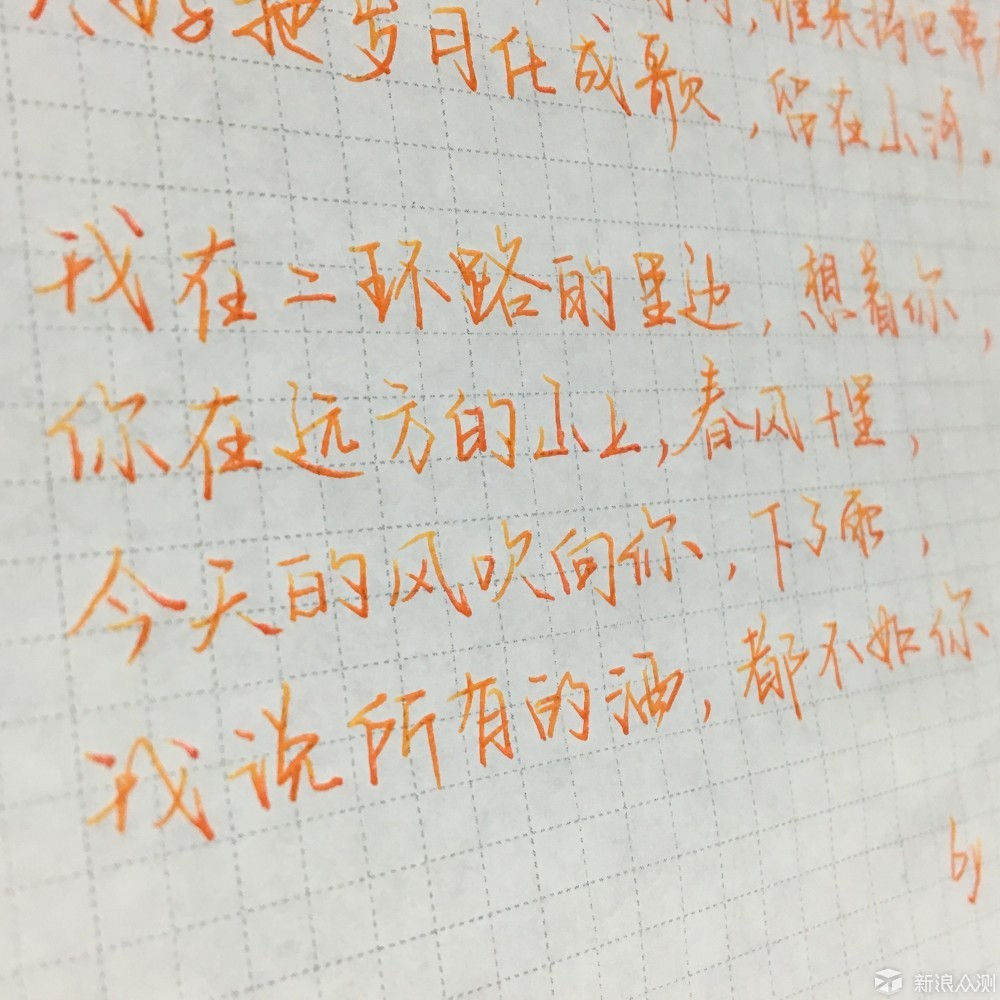 ，谁来
好把岁月化成歌，留在山河。
我在二环路的里边，想着你，
你在远方的山上，春风十里，
今天的风吹向你，下了雨，
我说所有的酒，都不如你
by
新浪众测